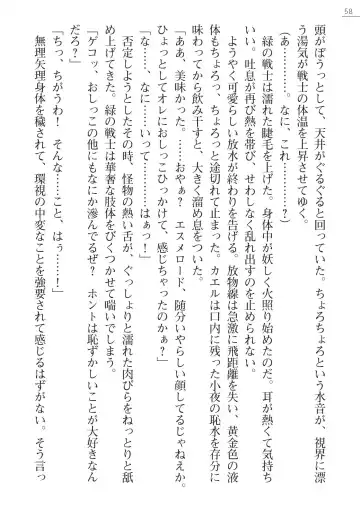 58
頭がぼうっとして、天井がぐるぐると回っていた。ちょろちょろという水音が、視界に漂
う湯気が戦士の体温を上昇させてゆく。
(あ………。なに、これ………?)
緑の戦士は濡れた睫毛を上げた。身体中が妖しく火照り始めたのだ。耳が熱くて気持ち
いい。吐息が再び熱を帯び、せわしなく乱れ出すのを止められない。
ようやく可愛らしい放水が終わりを告げる。放物線は急激に飛距離を失い、黄金色の液
体もちょろっ、ちょろっと途切れて止まった。カエルは口内に残った小夜の恥水を存分に
味わってから飲み干すと、大きく溜め息をついた。
「ああ、美味かった。……おやぁ? エスメロード、随分いやらしい顔してるじゃねえか。
ひょっとしてオレにおしっこひっかけて、感じちゃったのかぁ?」
「な……、なに……いって……はぁっ!」
否定しようとしたその時、怪物の熱い舌が、ぐっしょりと濡れた肉びらをねっとりと舐
め上げてきた。緑の戦士は華奢な肢体をびくつかせて喘いでしまう。
「ゲコッ、おしっこの他にもなにか滲んでるぜ? ホントは恥ずかしいことが大好きなん
だろ?」
「ちっ、ちがうわ! そんな……こと、はぅ……!」
無理矢理身体を穢されて、環視の中変なことを強要されて感じるはずがない。そう言っ